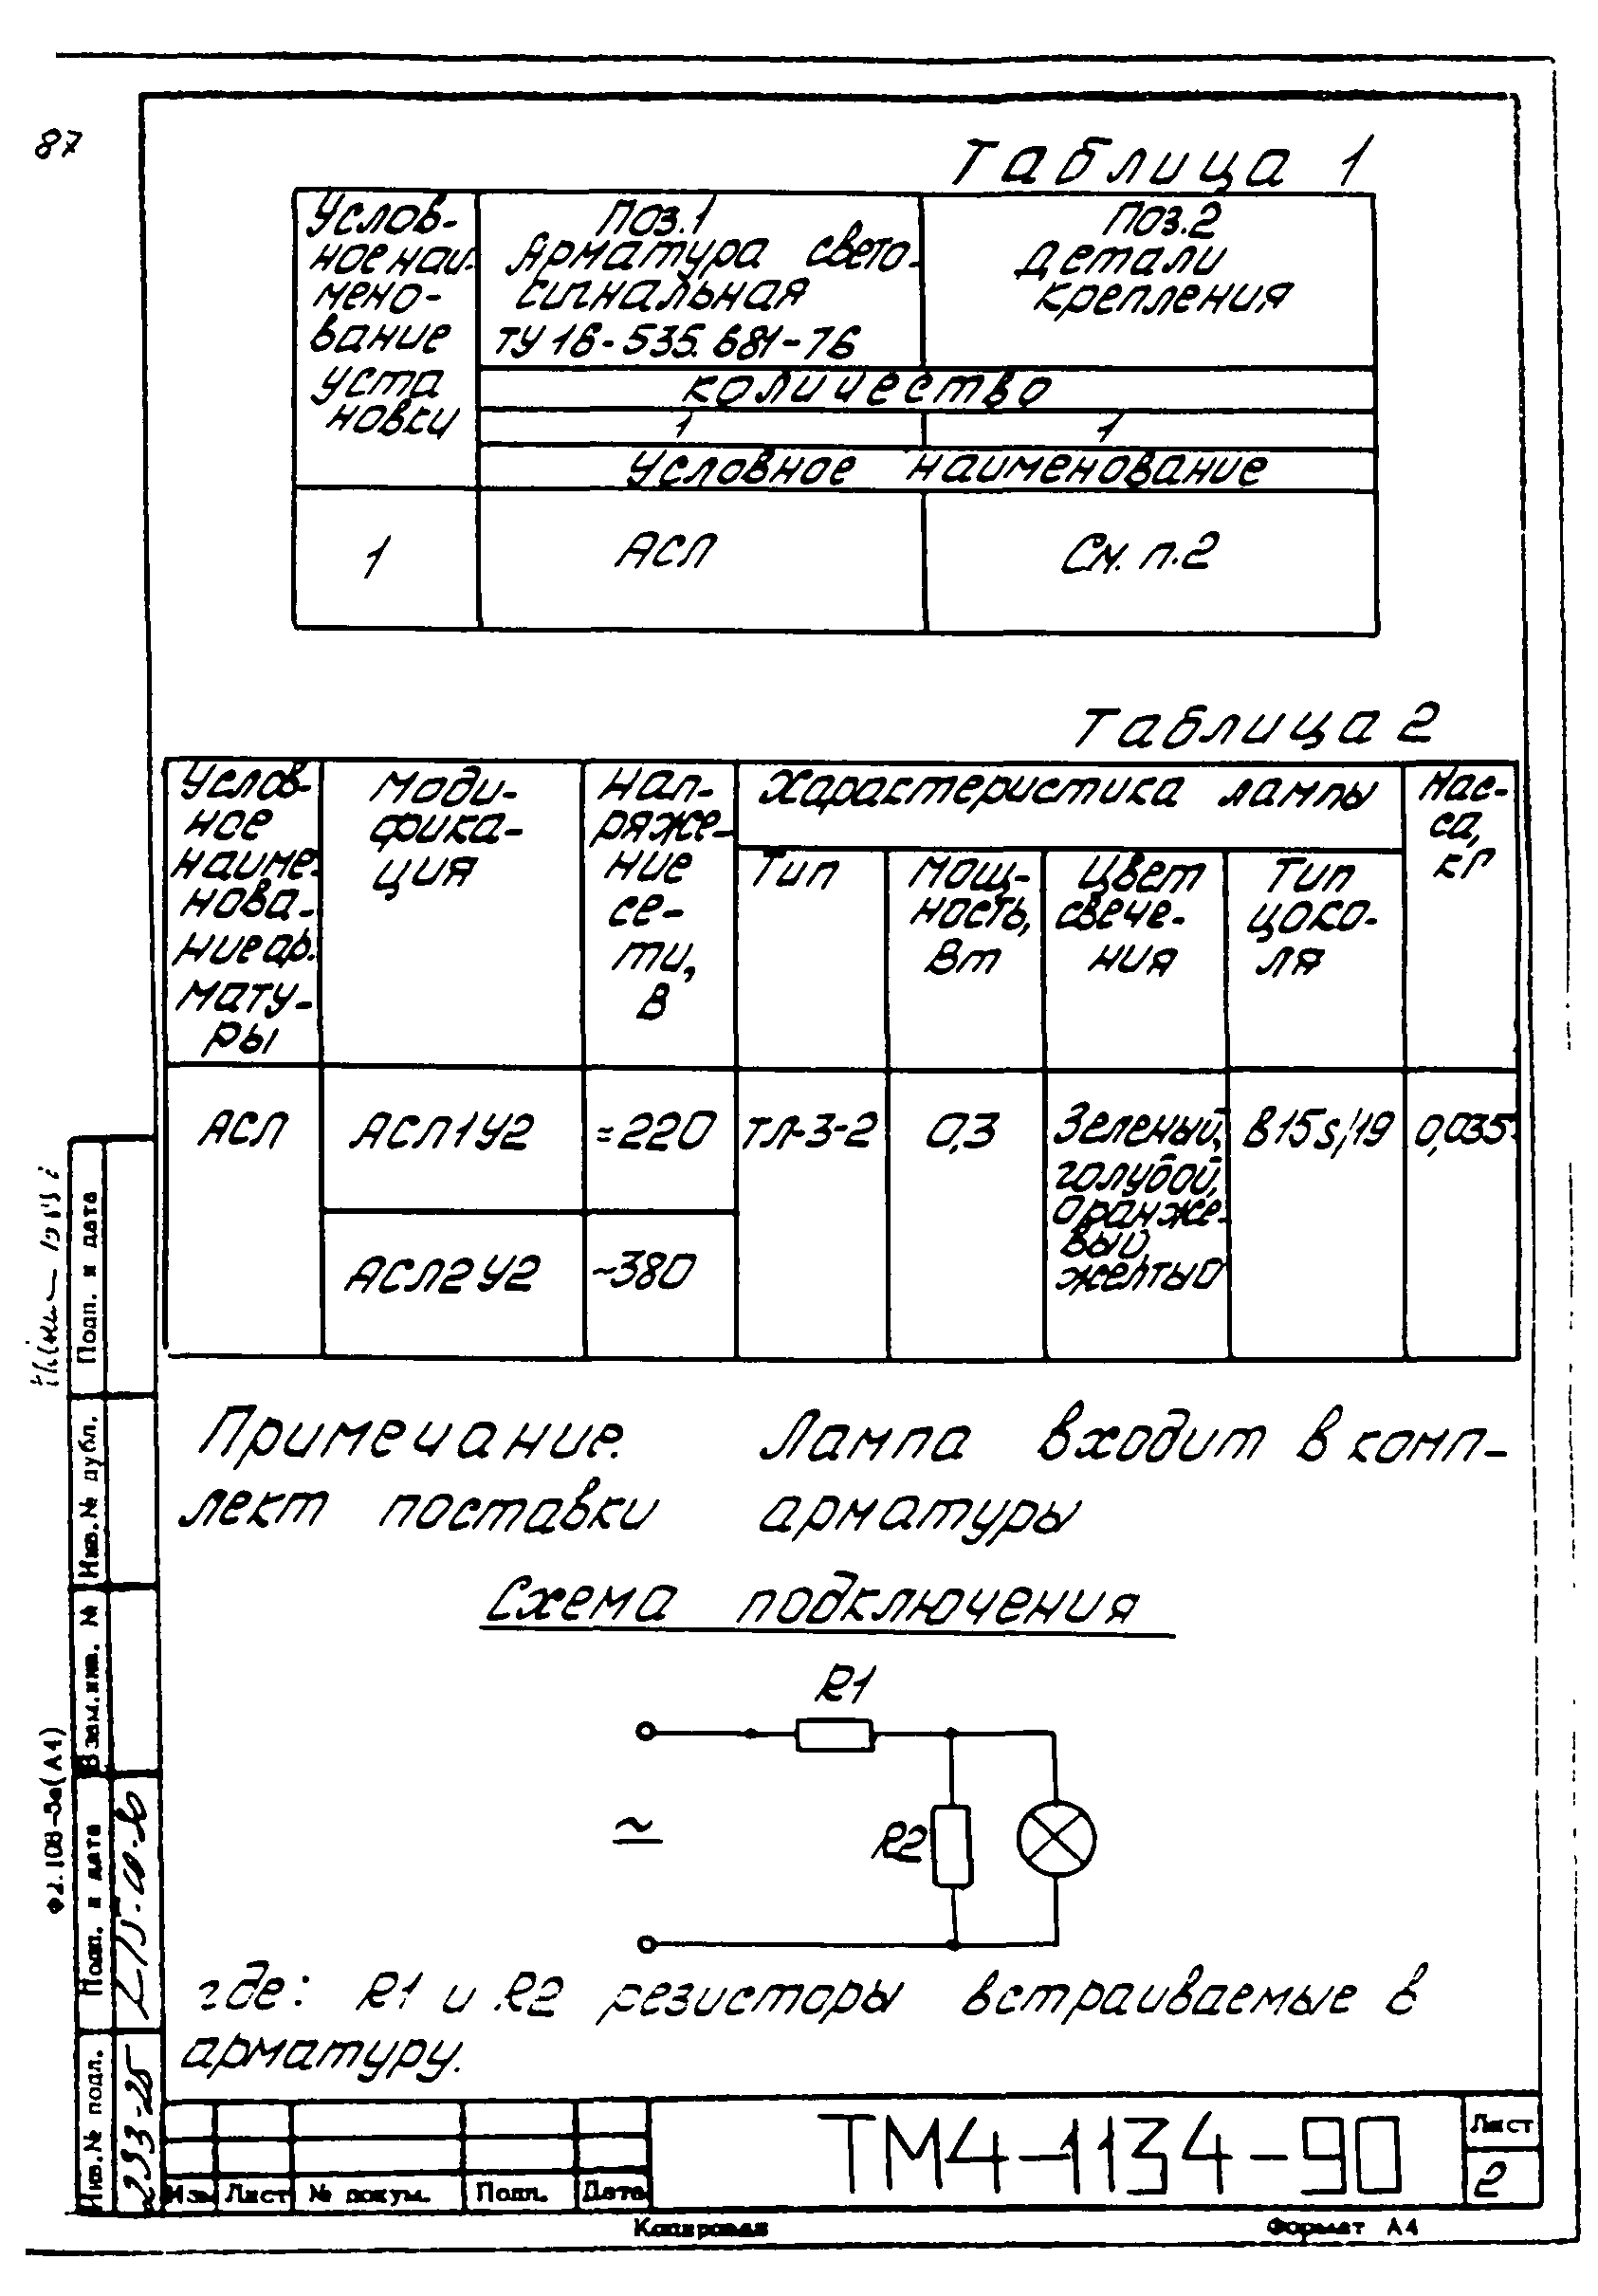 87
Таблица 1
Услов-
ное наи-
мено-
вание
уста
новки
Поз.1
Арматура свето-
сигнальная
ТУ 16-535.681-76
Поз.2
Детали
крепления
количество
1 1
Условное наименование
1 АСЛ См. п.2
Таблица 2
Услов-
ное
наиме-
нова-
ние ар-
мату-
ры
Моди-
фика-
ция
Нап-
ряже-
ние
се-
ти,
В
Характеристика лампы
Тип
Мощ-
ность,
Вт
Цвет
свече-
ния
Тип
цоко-
ля
Мас-
са,
кг
АСЛ АСЛ1У2 =220 ТЛ-3-2 0,3
Зеленый,
голубой,
оранже-
вый,
желтый
В15s/19 0,035
АСЛ2У2 ~380
Примечание. Лампа входит в комп-
лект поставки арматуры
Схема подключения
R1
≃
R2
где: R1 и R2 резисторы встраиваемые в
арматуру.
Подп. и дата
Инв.№ дубл.
Взам.инв. №
Подп. и дата
Инв.№ подл.
233-25
Ф2.108-5а(А4)
Изм Лист № докум. Подп. Дата
ТМ4-1134-90
Лист
2
Копировал Формат А4